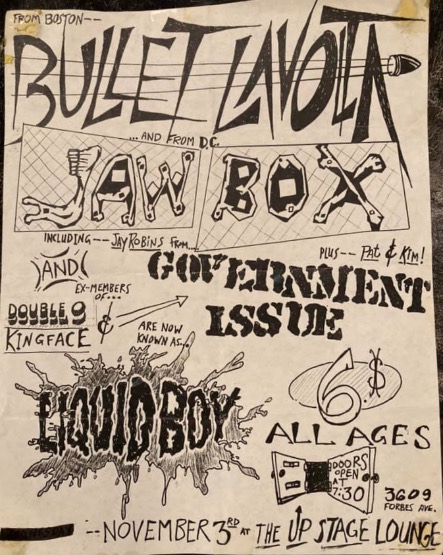 FROM BOSTON--
BULLET LAVOLTA
...AND FROM D.C.
JAW BOX
INCLUDING-- JAY ROBINS FROM...
PLUS-- PAT & KIM!
GOVERNMENT
ISSUE
AND
EX-MEMBERS
OF...
DOUBLE O
&
KINGFACE
ARE NOW
KNOWN AS..
LIQUID BOY
6$
ALL AGES
DOORS
OPEN
AT
7:30
3609
FORBES AVE.
--NOVEMBER 3RD AT THE UPSTAGE LOUNGE